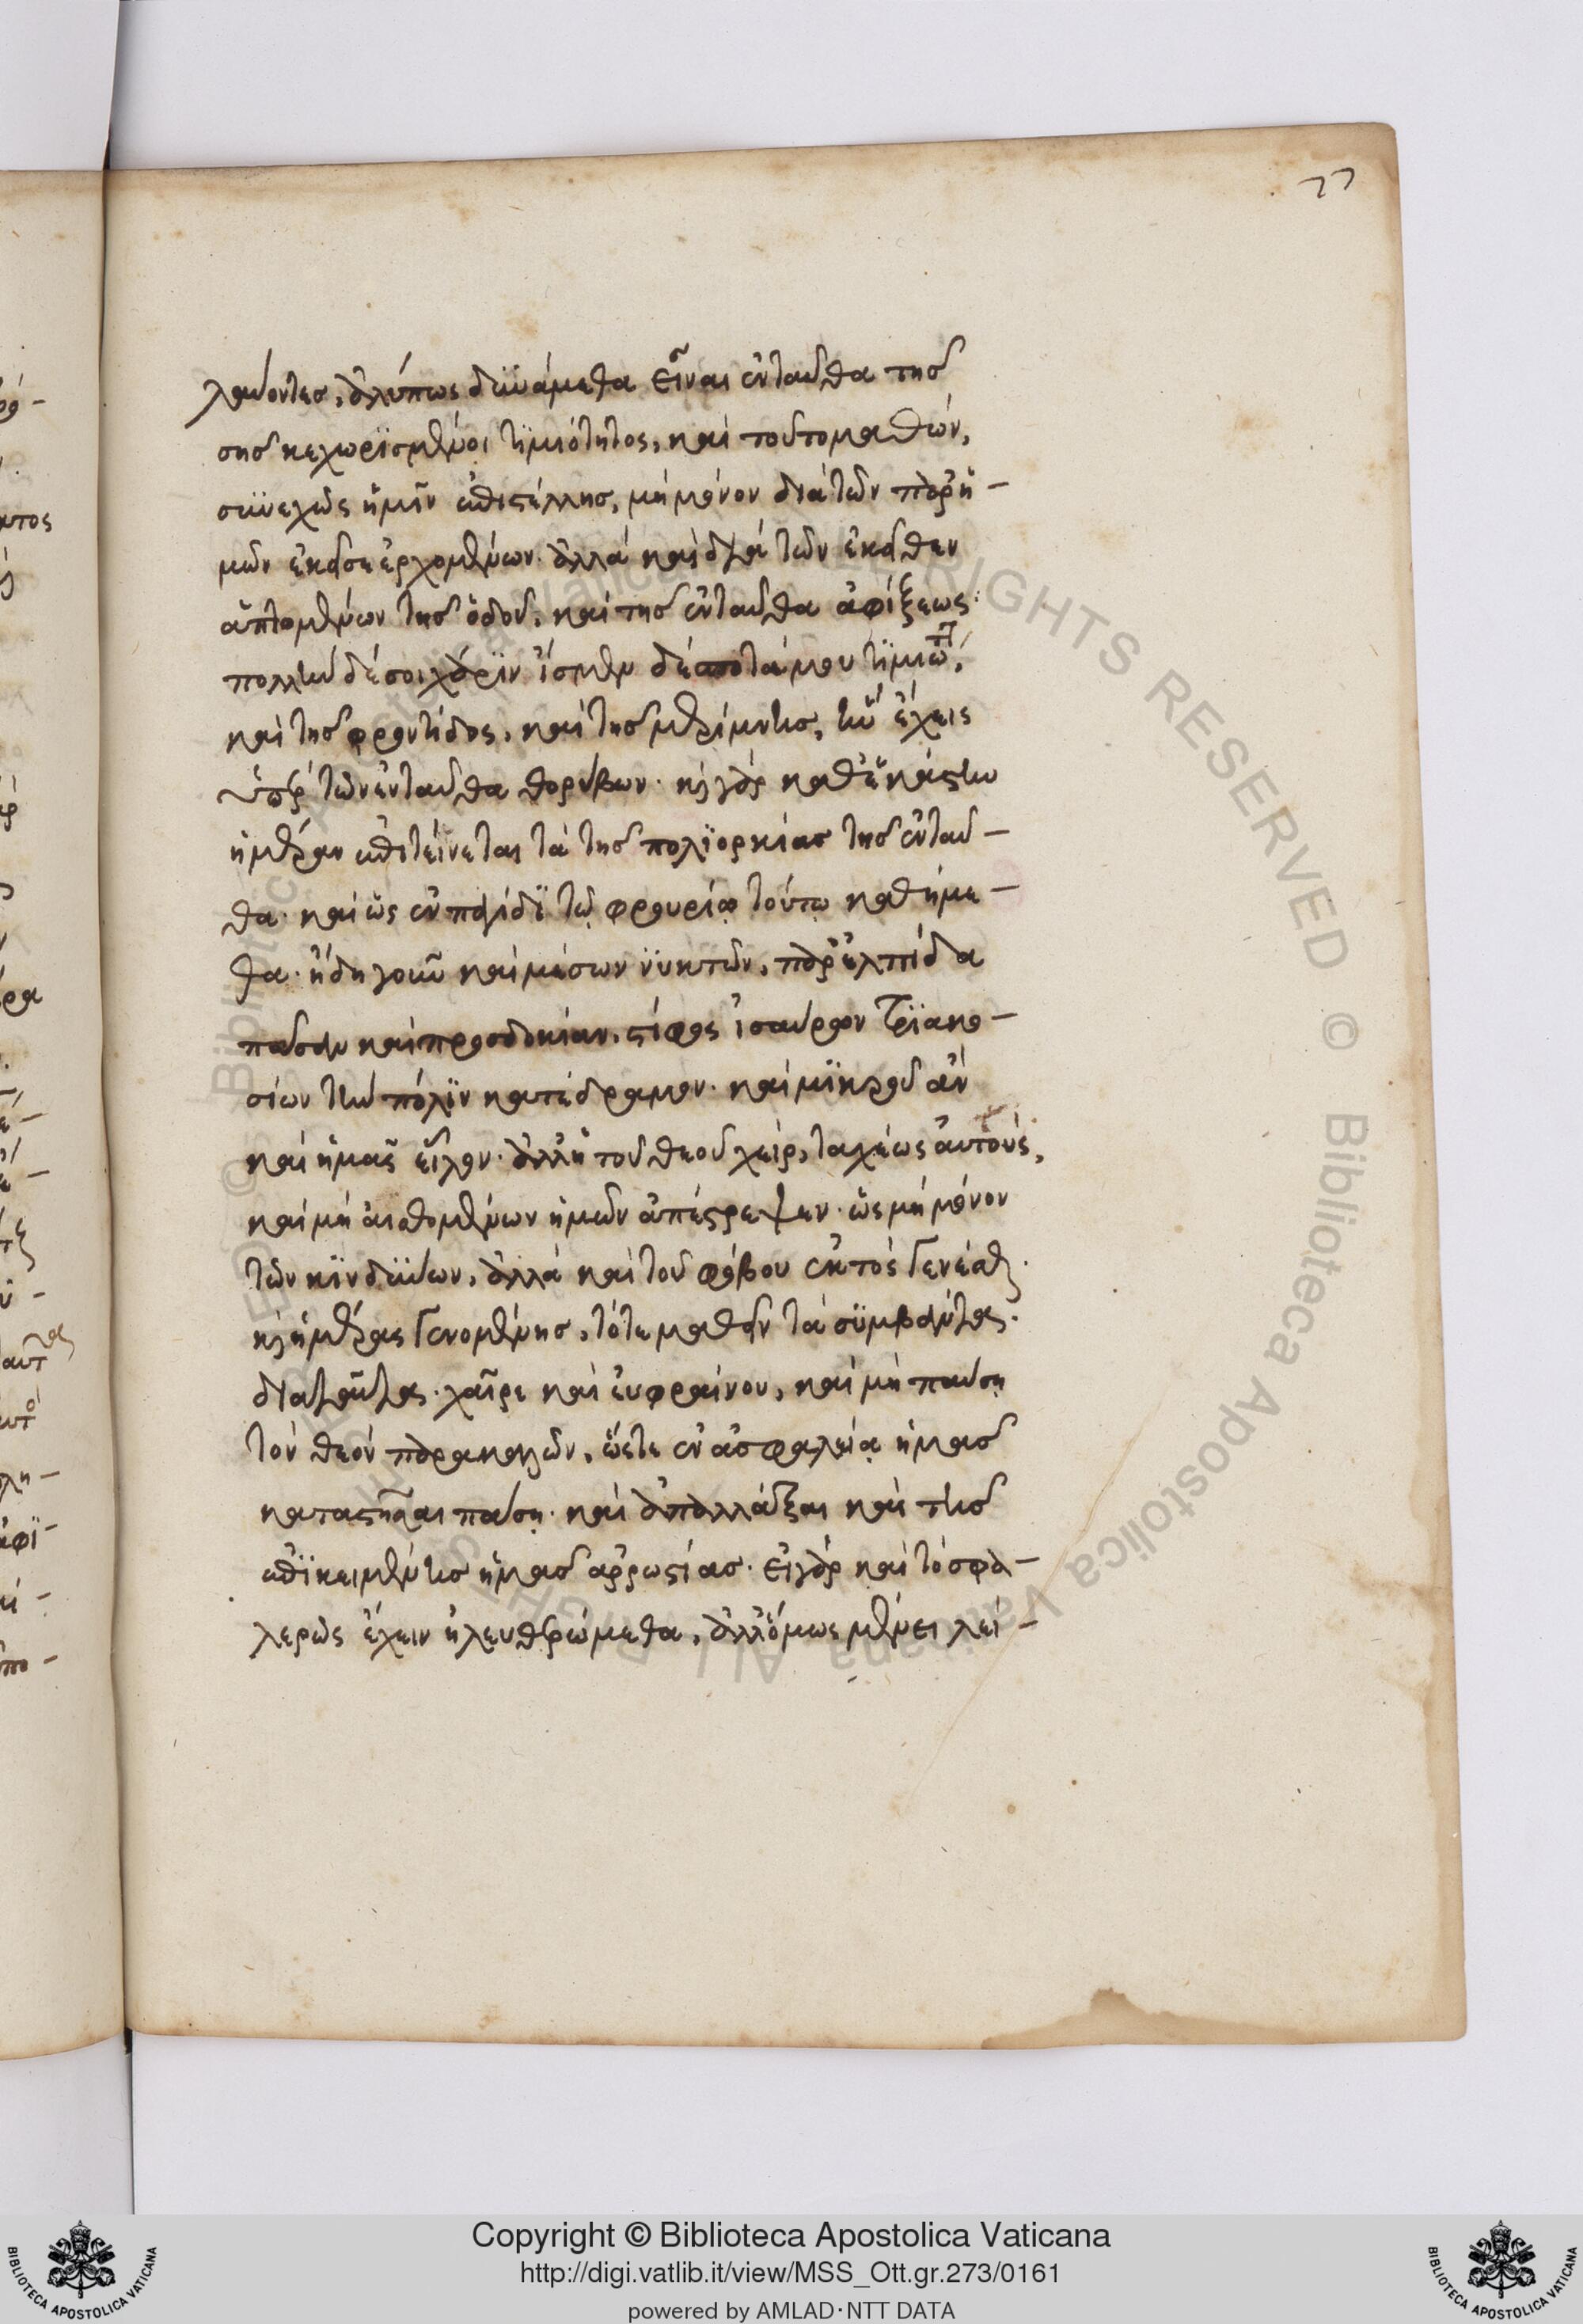 77
λαύοντες, ἀλύπως δυνάμεθα εἶναι ἐνταῦθα τῆς
σῆς κεχωρϊσμένοι τϊμιότητος, καὶ τοῦτο μαθών,
συνεχῶς ἡμῖν ἐπιστέλλης, μὴ μόνον διὰ τῶν παρ' ἡ-
μῶν ἐκεῖσε ἐρχομένων· ἀλλὰ καὶ διὰ τῶν ἐκεῖθεν
ἁπτομένων τῆς ὁδοῦ, καὶ τῆς ἐνταῦθα ἀφίξεως·
πολλὴν δέ σοι χάρϊν ἴσμεν δέσποτά μου τϊμιώτ,
καὶ τῆς φροντίδος, καὶ τῆς μερίμνης, ἣν ἔχεις
ὑπὲρ τῶν ἐνταῦθα θορύβων· καὶ γὰρ καθ' ἑκάστην
ἡμέραν ἐπιτείνεται τὰ τῆς πολϊορκίας τῆς ἐνταῦ-
θα· καὶ ὡς ἐν παγίδϊ τῷ φρουρίῳ τούτῳ καθήμε-
θα· ἤδη γοῦν καὶ μέσων νϋκτῶν, παρ' ἐλπίδα
πᾶσαν καὶ προσδοκίαν, στίφος ἰσαύρων τρϊακο-
σίων τὴν πόλϊν κατέδραμον· καὶ μϊκροῦ ἂν
καὶ ἡμᾶς εἷλον· ἀλλ' ἡ τοῦ θεοῦ χεὶρ, ταχέως αὐτοὺς,
καὶ μὴ αἰσθομένων ἡμῶν ἀπέστρεψεν· ὡς μὴ μόνον
τῶν κϊνδϋνων, ἀλλὰ καὶ τοῦ φόβου ἐκτὸς γενέσθαι·
καὶ ἡμέρας γενομένης, τότε μαθεῖν τὰ σϋμβάντα·
διὰ ταῦτα· χαῖρε καὶ εὐφραίνου, καὶ μὴ παύσῃ
τὸν θεὸν παρακαλῶν, ὥστε ἐν ἀσφαλείᾳ ἡμᾶς
καταστῆσαι πάσῃ· καὶ ἀπαλλάξαι καὶ τῆς
ἐπϊκειμένης ἡμᾶς ἀρρωστίας· εἰ γὰρ καὶ τὸ σφα-
λερῶς ἔχειν ἠλευθερώμεθα, ἀλλ' ὅμως μένει λεί-
Copyright © Biblioteca Apostolica Vaticana
http://digi.vatlib.it/view/MSS_Ott.gr.273/0161
powered by AMLAD·NTT DATA